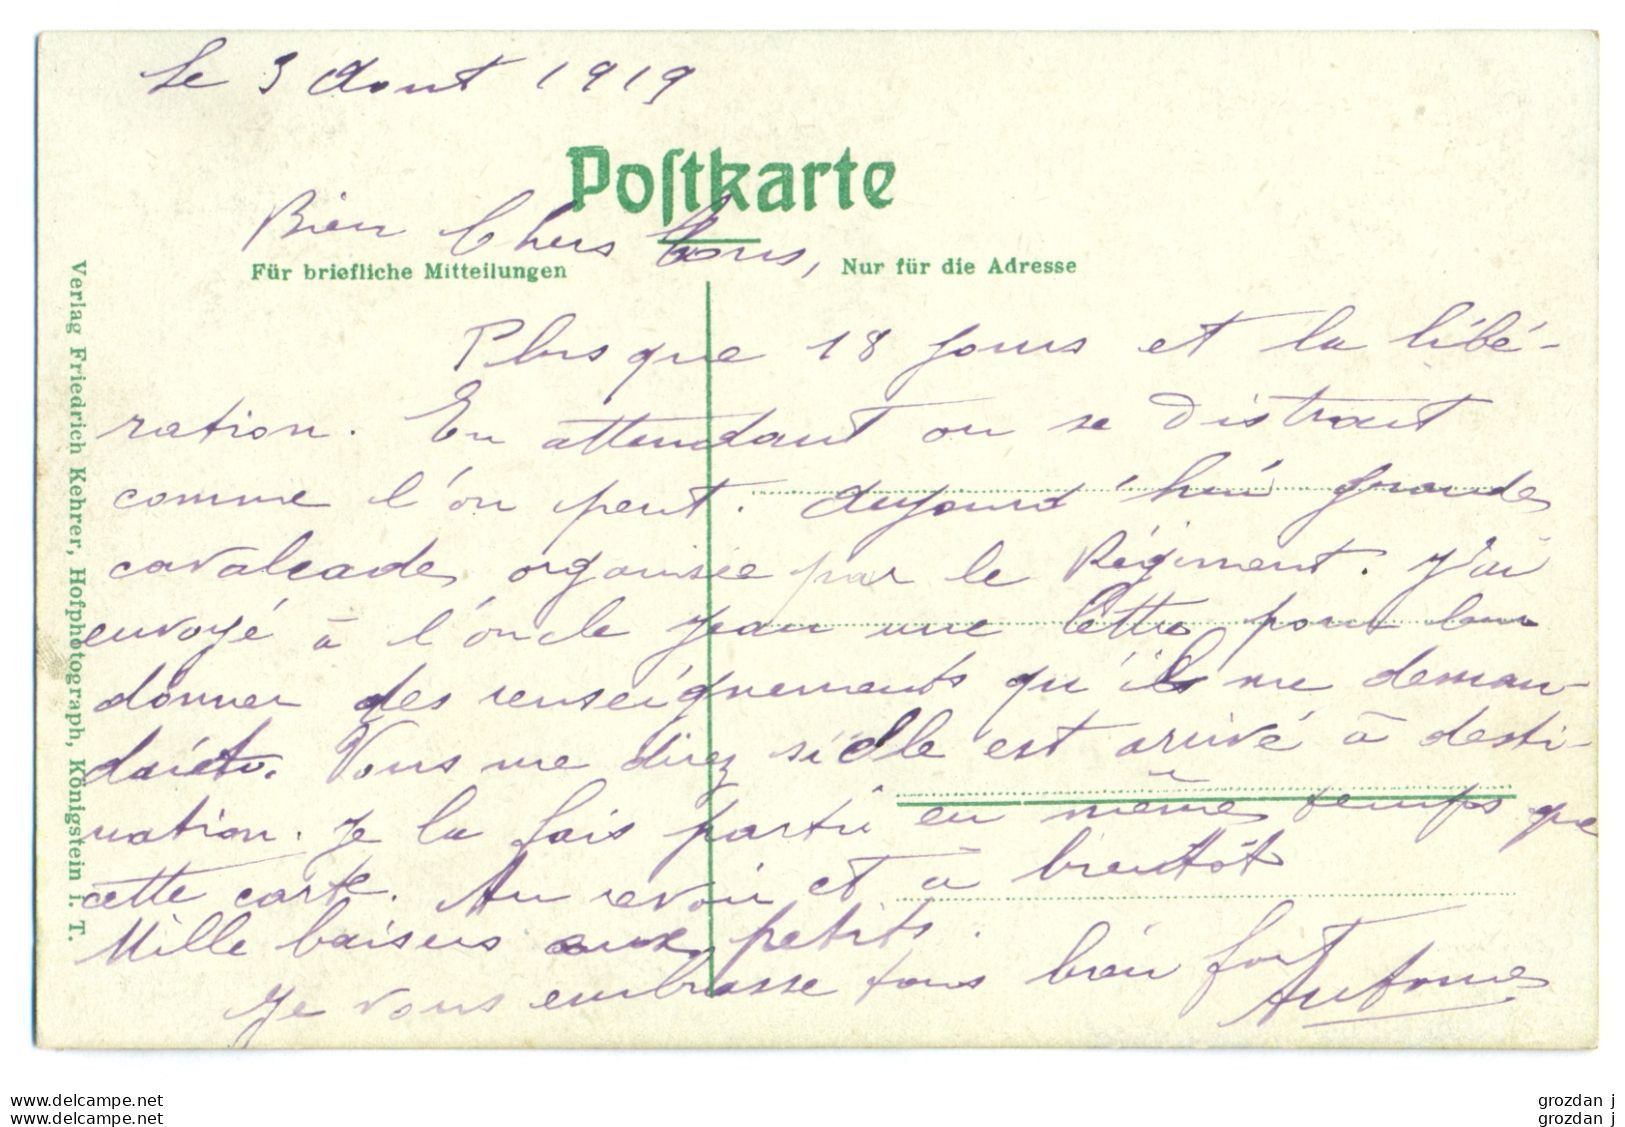 Le 3 Aout 1919
Postkarte
Bien Chers Tous,
Für briefliche Mitteilungen
Nur für die Adresse
Verlag Friedrich Kehrer, Hofphotograph, Königstein i. T.
Plus que 18 jours et la libé-
ration. En attendant on se distrait
comme l'on peut. Aujourd'hui grande
cavalcade organisée par le Régiment. J'ai
envoyé à l'oncle Jean une lettre pour leur
donner des renseignements qu'ils me deman-
daient. Vous me direz si elle est arrivé à desti-
nation. Je la fais partir en même temps que
cette carte. Au revoir et à bientôt
Mille baisers aux petits.
Je vous embrasse tous bien fort
Antoine
www.delcampe.net
grozdan j
www.delcampe.net
grozdan j